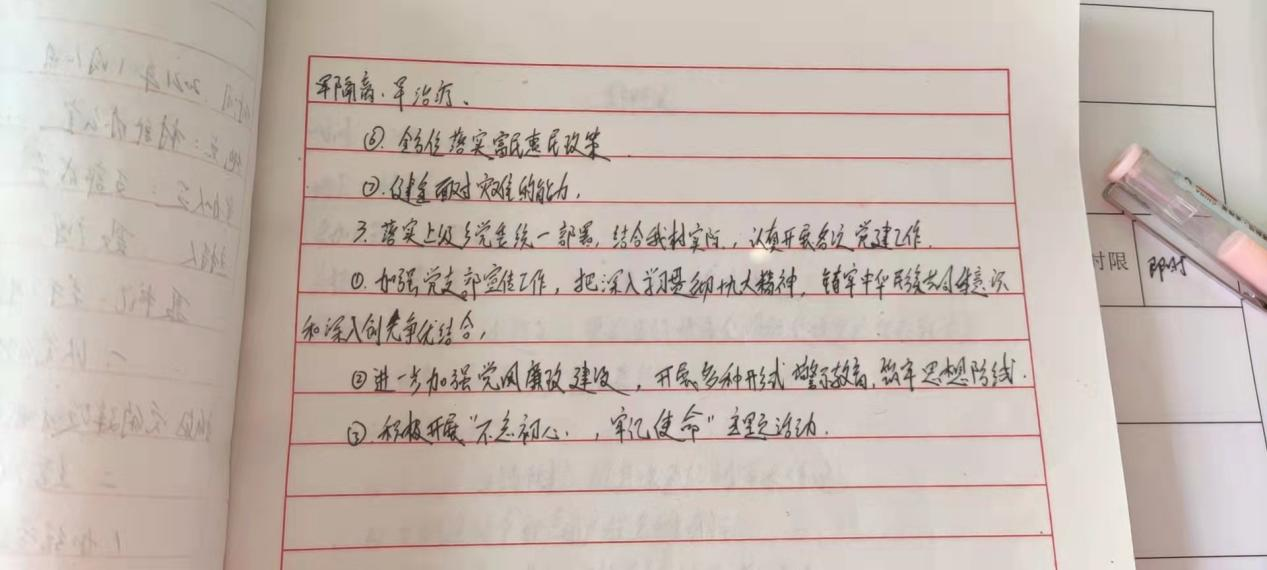 早隔离、早治疗、
⑥. 全方位落实富民惠民政策
⑦. 健全面对灾难的能力.
3. 落实上级乡党委统一部署, 结合我村实际, 认真开展各次党建工作.
①. 加强党支部宣传工作, 把深入学习贯彻十九大精神, 铸牢中华民族共同体意识
和深入创先争优结合,
②进一步加强党风廉政建设, 开展多种形式警示教育, 筑牢思想防线.
③. 积极开展“不忘初心, 牢记使命”主题活动.
时限
即时